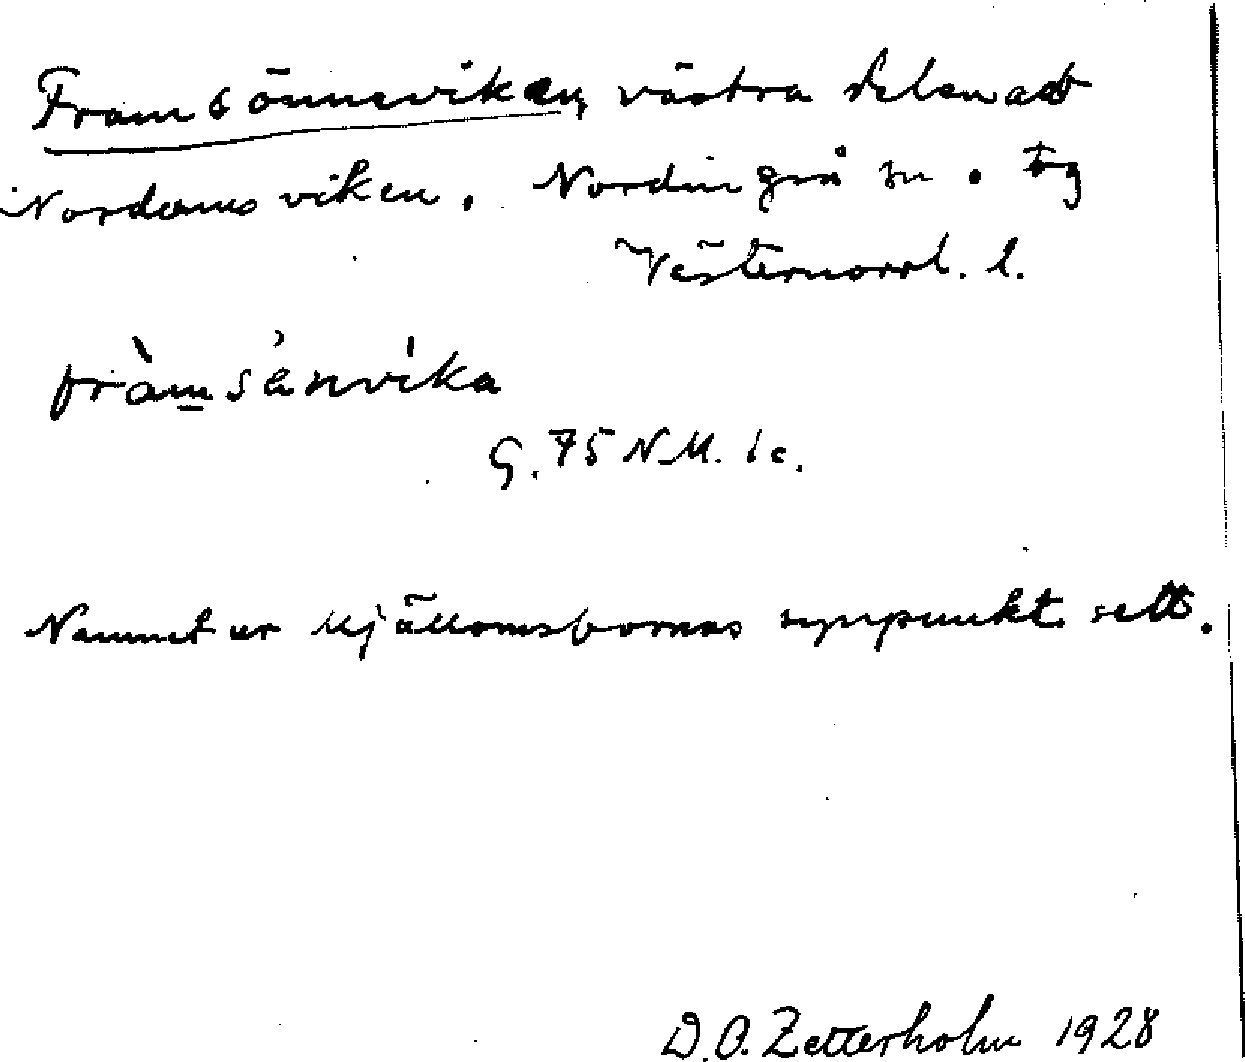 Framsönneviken, västra delen av
Nordansviken. Nordingrå sn. Åg
Västernorrl. l.
fràmsänvika
G. 75 N.M. 1c.
Namnet ur Mjällomsbornas synpunkt sett.
D.O. Zetterholm 1928